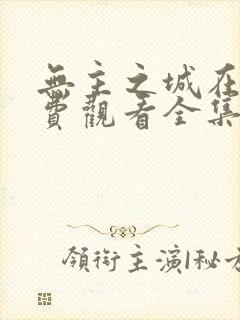 無主之城在
費觀看全集
領銜主演|秘方